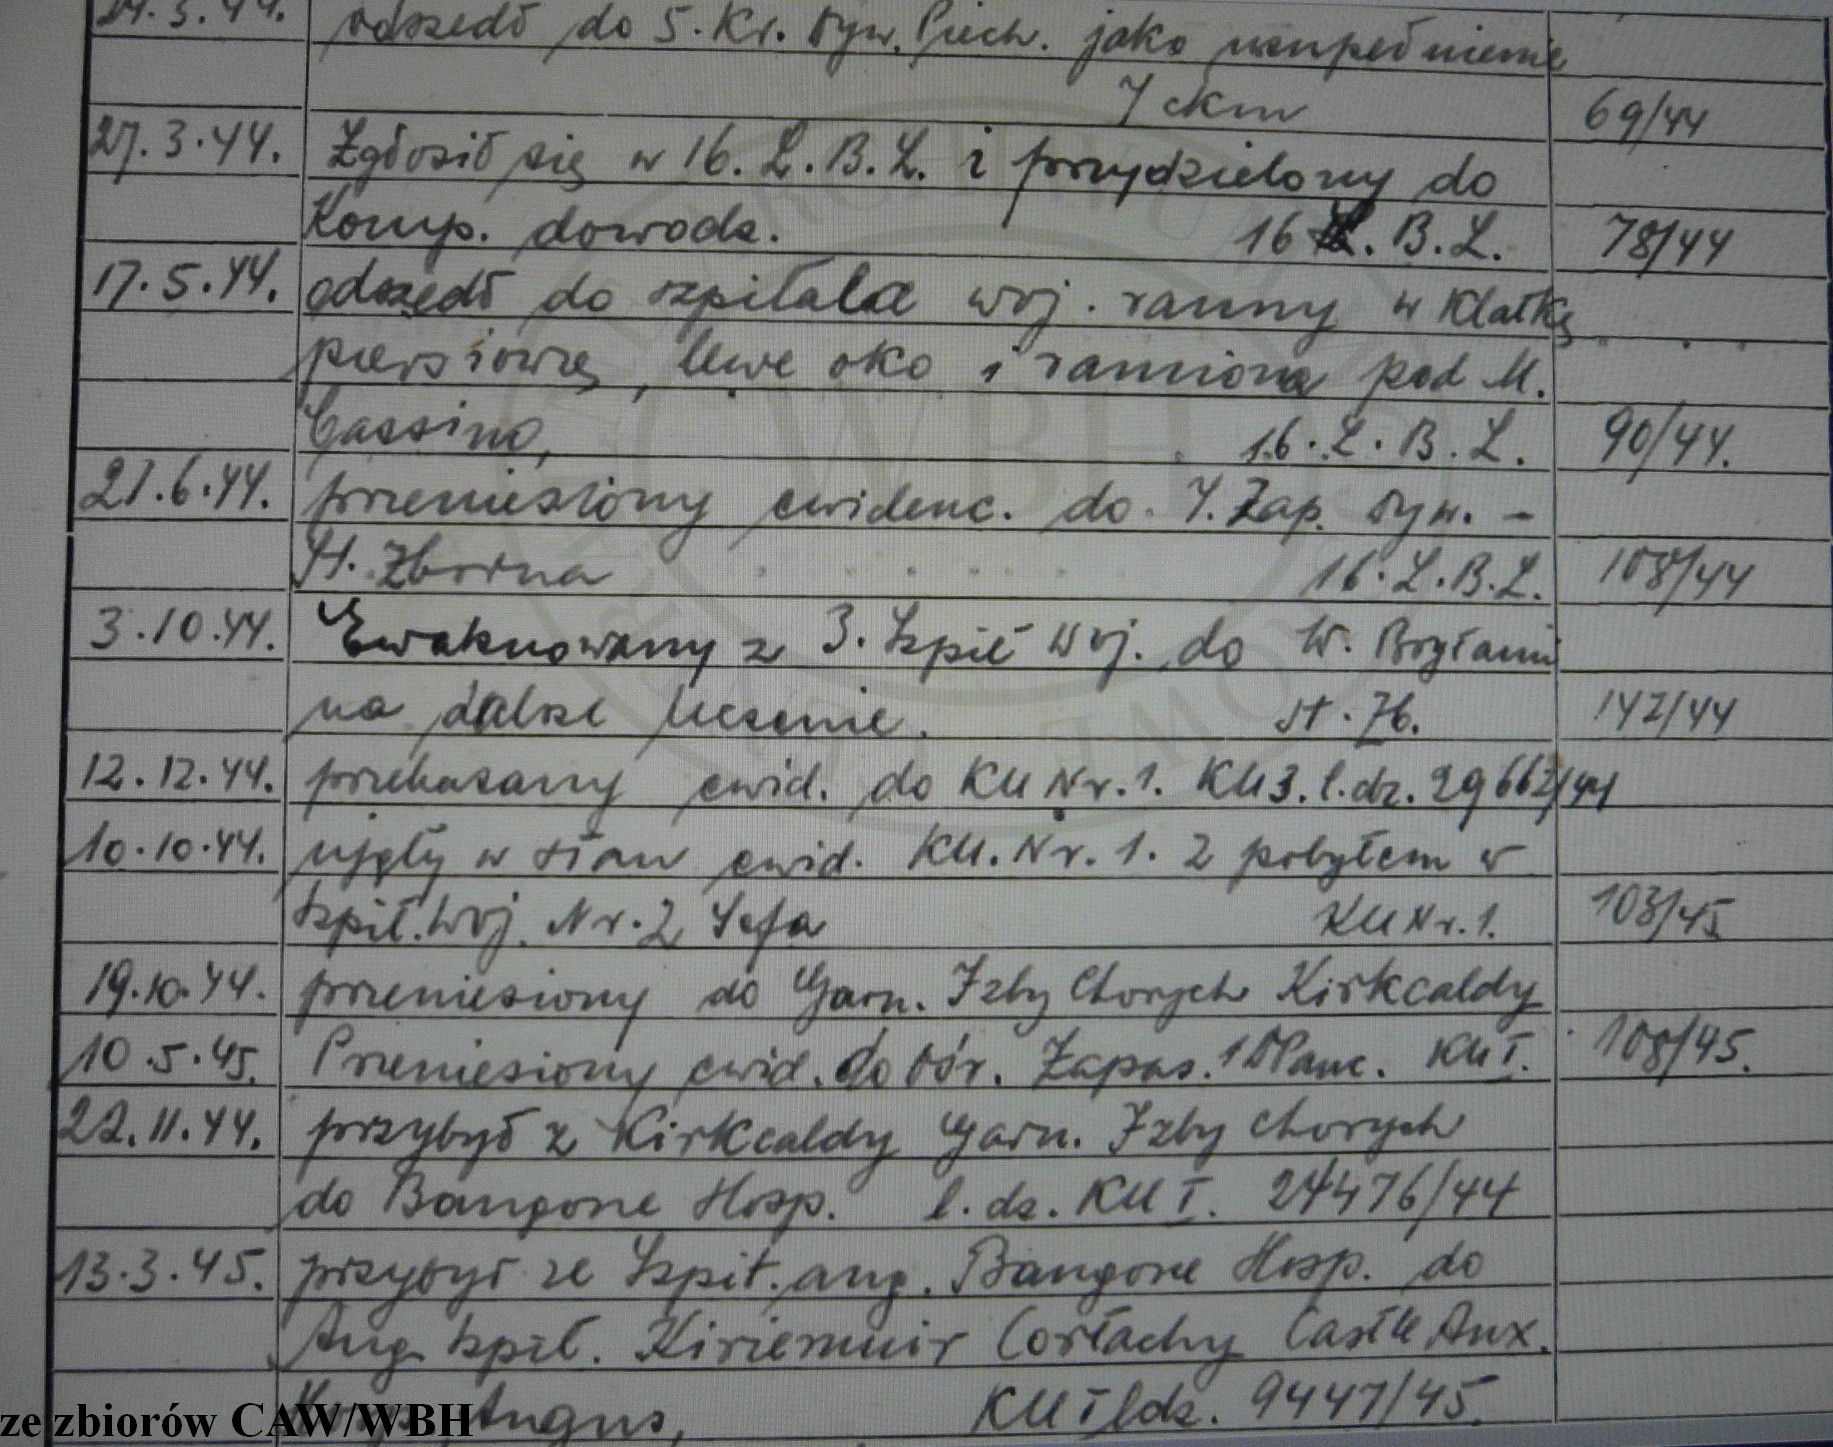 24.3.44. odszedł do 5. Kr. Dyw. Piech. jako uzupełnienie
7 ckm 69/44
27.3.44. Zgłosił się w 16. L.B.L. i przydzielony do
Komp. dowodz. 16 L.B.L. 78/44
17.5.44. odszedł do szpitala woj. ranny w klatkę
piersiową, lewe oko i ramiona pod M.
Cassino, 16.L.B.L. 90/44.
21.6.44. przeniesiony ewidenc. do 7. Zap. Dyw. -
St. Zborna 16.L.B.L. 108/44
3.10.44. Ewakuowany z 3. Szpit Woj. do W. Brytanii
na dalsze leczenie. st. 76. 142/44
12.12.44. przekazany ewid. do KU Nr.1. KU3.l.dz. 29662/44
10.10.44. ujęty w stan ewid. KU.Nr.1. z pobytem w
Szpit. Woj. Nr.2, KU Nr.1. 103/45
19.10.44. przeniesiony do Garn. Izby Chorych Kirkcaldy
10.5.45. Przeniesiony ewid. do Ośr. Zapas. 1 DPanc. KU I. 108/45.
22.11.44. przybył z Kirkcaldy Garn. Izby Chorych
do Bangone Hosp. l.dz. KU I. 24476/44
13.3.45. przybył ze Szpit. ang. Bangone Hosp. do
Ang. szpit. Kiriemuir Cortachy Castle Aux.
Hosp. Angus, KU I ldz. 9447/45.
ze zbiorów CAW/WBH